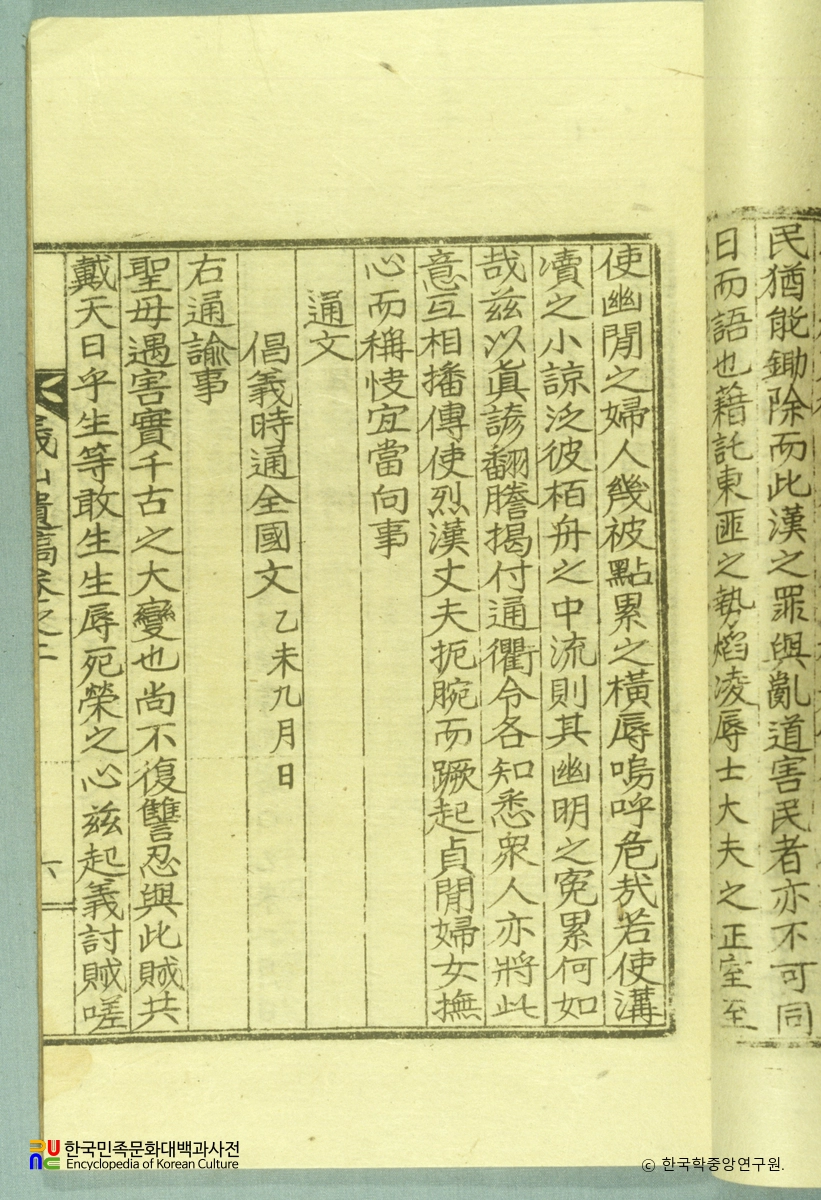 民猶能鋤除而此漢之罪與亂道害民者亦不可同
日而語也藉託東匪之勢焰凌辱士大夫之正室至
使幽閒之婦人幾被點累之橫辱嗚呼危㢤若使溝
瀆之小諒泛彼栢舟之中流則其幽明之寃累何如
哉茲以眞諺翻謄揭付通衢令各知悉衆人亦將此
意互相播傳使烈漢丈夫扼腕而蹶起貞閒婦女撫
心而稱快宜當向事
通文
倡義時通全國文 乙未九月日
右通諭事
聖母遇害實千古之大變也尚不復讐忍與此賊共
戴天日乎生等敢生生辱死榮之心茲起義討賊嗟
山遺稿卷之二
六
한국민족문화대백과사전
Encyclopedia of Korean Culture
ⓒ 한국학중앙연구원.